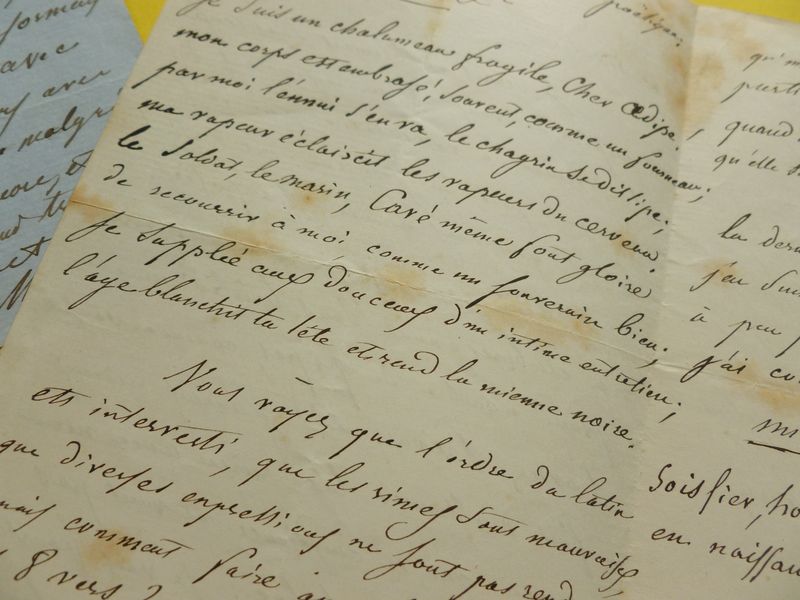 Je suis un chalumeau fragile, Cher Œdipe.
mon corps est embrasé, souvent, comme un fourneau;
par moi l'ennui s'en va, le chagrin se dissipe;
ma vapeur éclaircit les vapeurs du cerveau.
le Soldat, le marin, Cavé même font gloire
de recourir à moi, comme un souverain bien;
je supplée aux douceurs d'un intime entretien;
l'âge blanchit ta tête et rend la mienne noire.
Vous voyez que l'ordre du latin
est interverti, que les rimes sont mauvaises,
que diverses expressions ne sont pas
mais comment faire
8 vers ?
avec
avec
malgré
quand
qu'elle
la
j'en
à peu
j'ai
Sois fier,
en